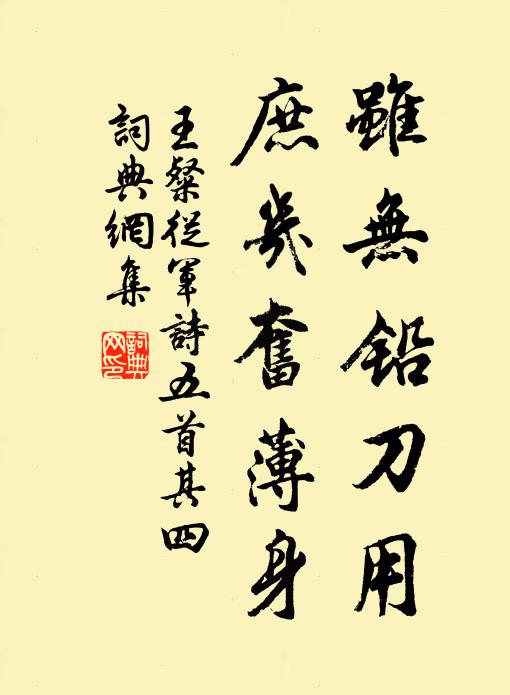 雖無鉛刀用
庶幾奮薄身
王粲從軍詩五首其四
詞典網集
詞典网印